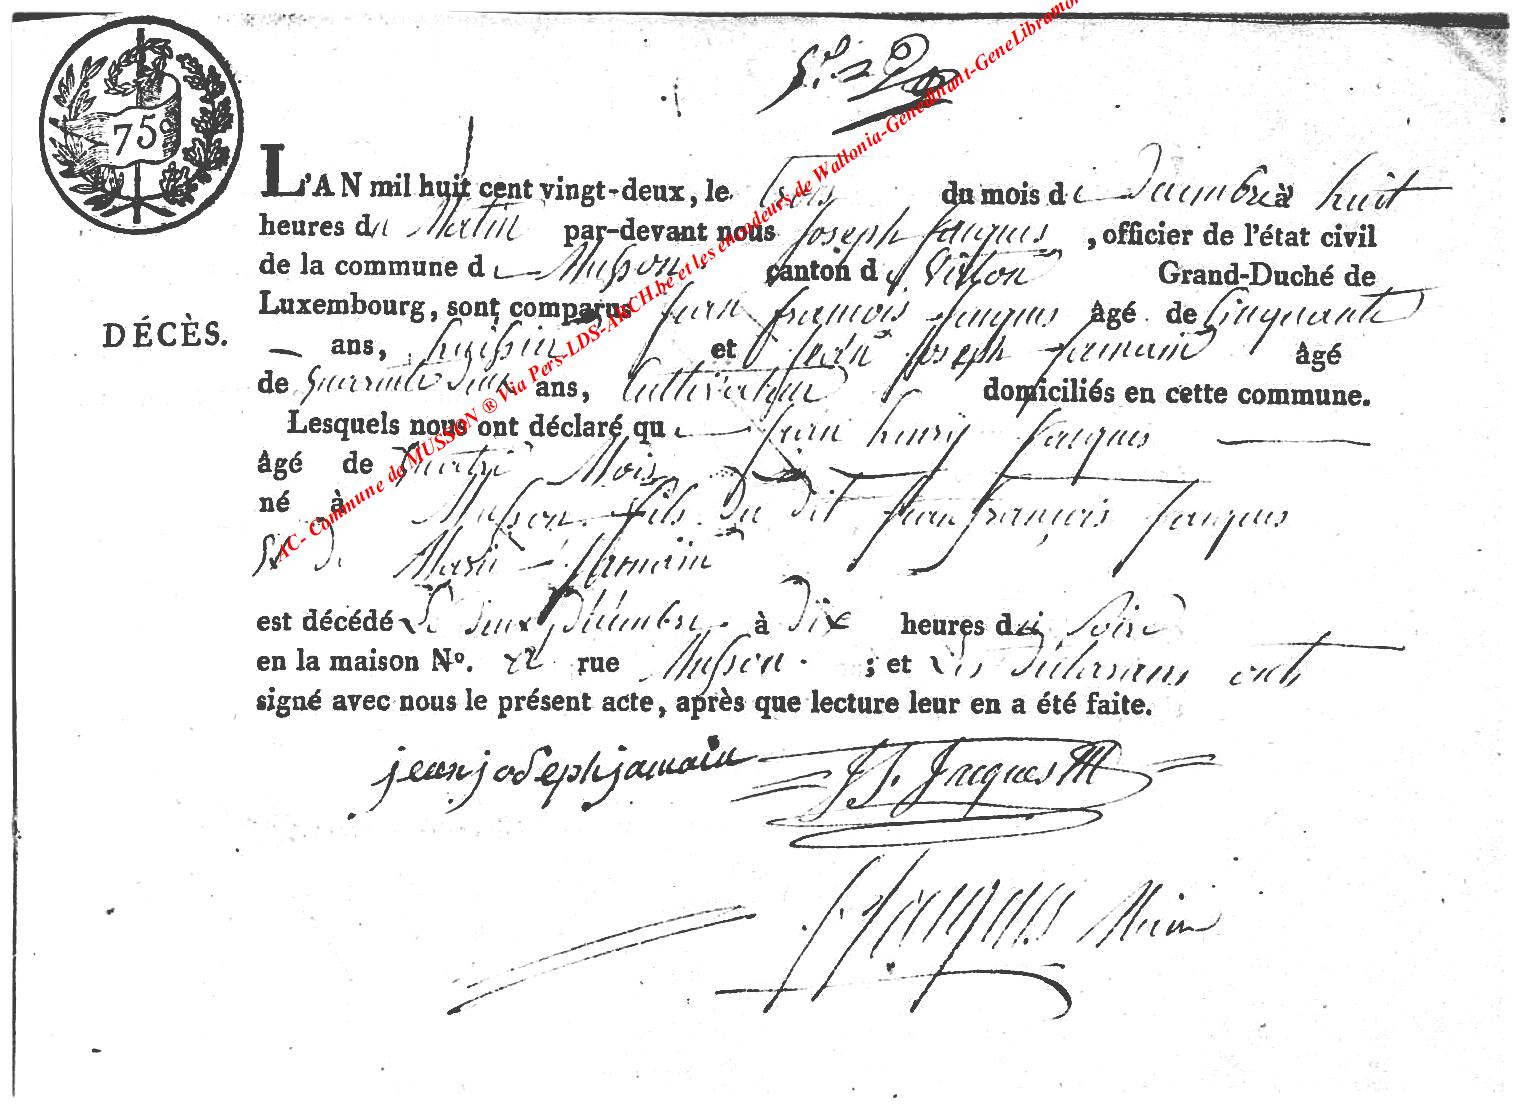 75c
L'AN mil huit cent vingt-deux, le trois du mois de Decembre à huit
heures du Matin par-devant nous Joseph Jacques, officier de l'état civil
de la commune de Musson, canton de Virton Grand-Duché de
Luxembourg, sont comparus Jean francois Jacques âgé de Cinquante
DÉCÈS.
ans, huissier et Jean Joseph Jamain âgé
de quarante deux ans, Cultivateur domiciliés en cette commune.
Lesquels nous ont déclaré que Jean henry Jacques
âgé de quatre Mois
né à Musson fils du dit Jean françois Jacques
et de Marie Jamain
est décédé le deux décembre à dix heures du soire
en la maison No. 22 rue Musson ; et les déclarans ont
signé avec nous le présent acte, après que lecture leur en a été faite.
jeanjosephjamain J f. Jacques
J Jacques
AC- Commune de MUSSON ® Via Pers-LDS-ARCH.be et les encodeurs de Wallonia-Genedinant-GeneLibramon